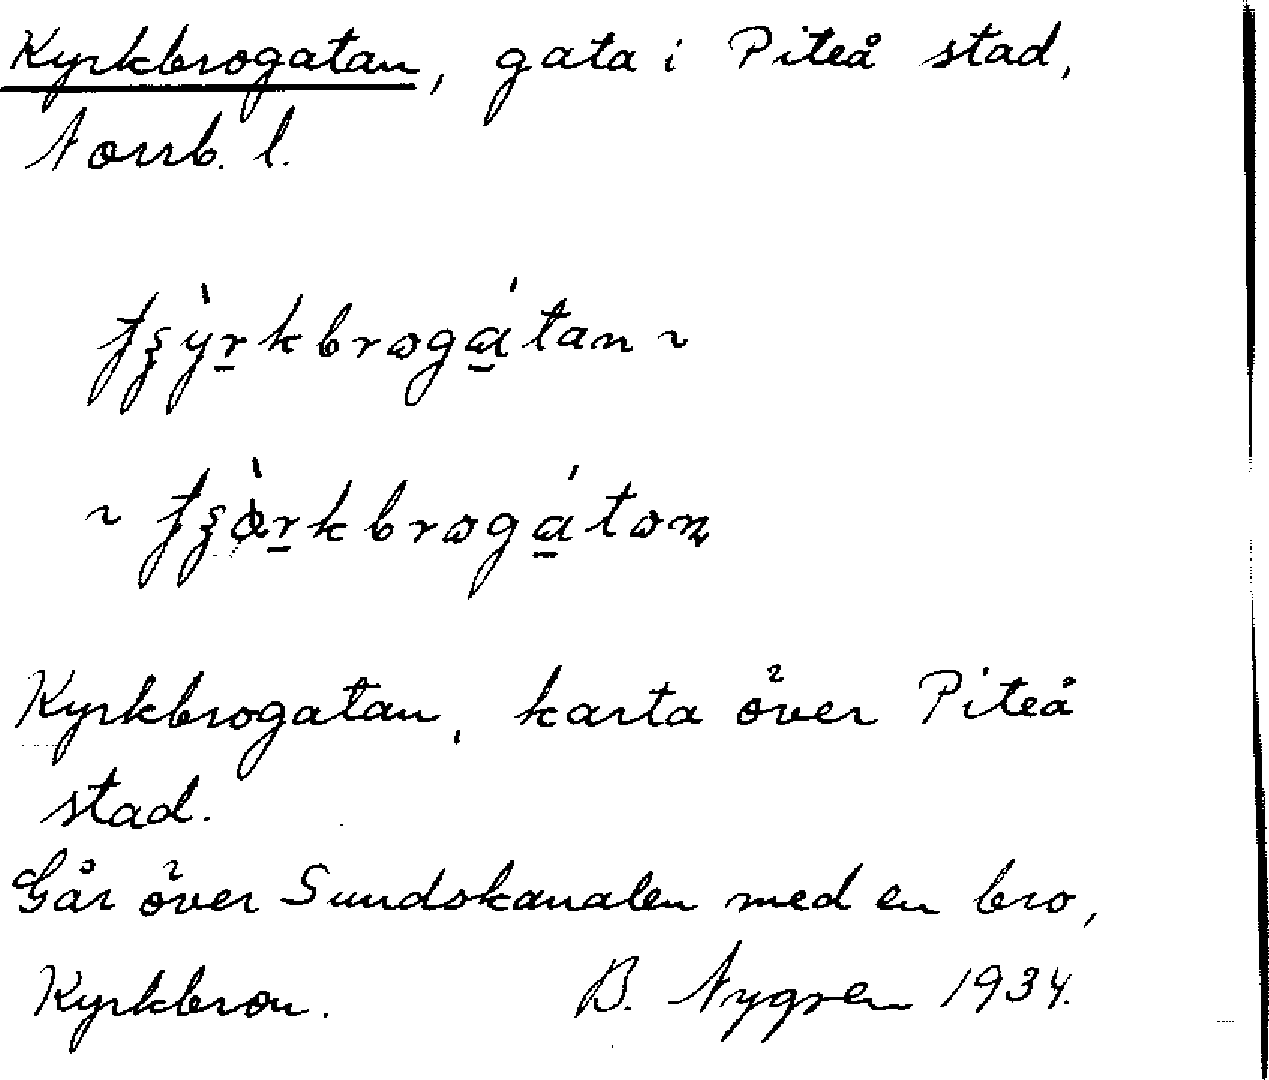 Kyrkbrogatan, gata i Piteå stad,
Norrb. l.
Kyrkbrogatan, karta över Piteå
stad.
Går över Sundskanalen med en bro,
Kyrkbron. B. Nygren 1934.